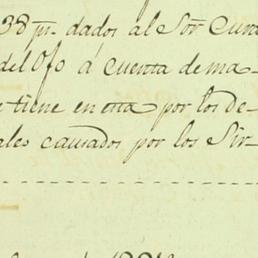 38 p.^s dados al Sor Cura
del Ofo á cuenta de ma-
e tiene en esta por los de-
ales causados por los Sir-